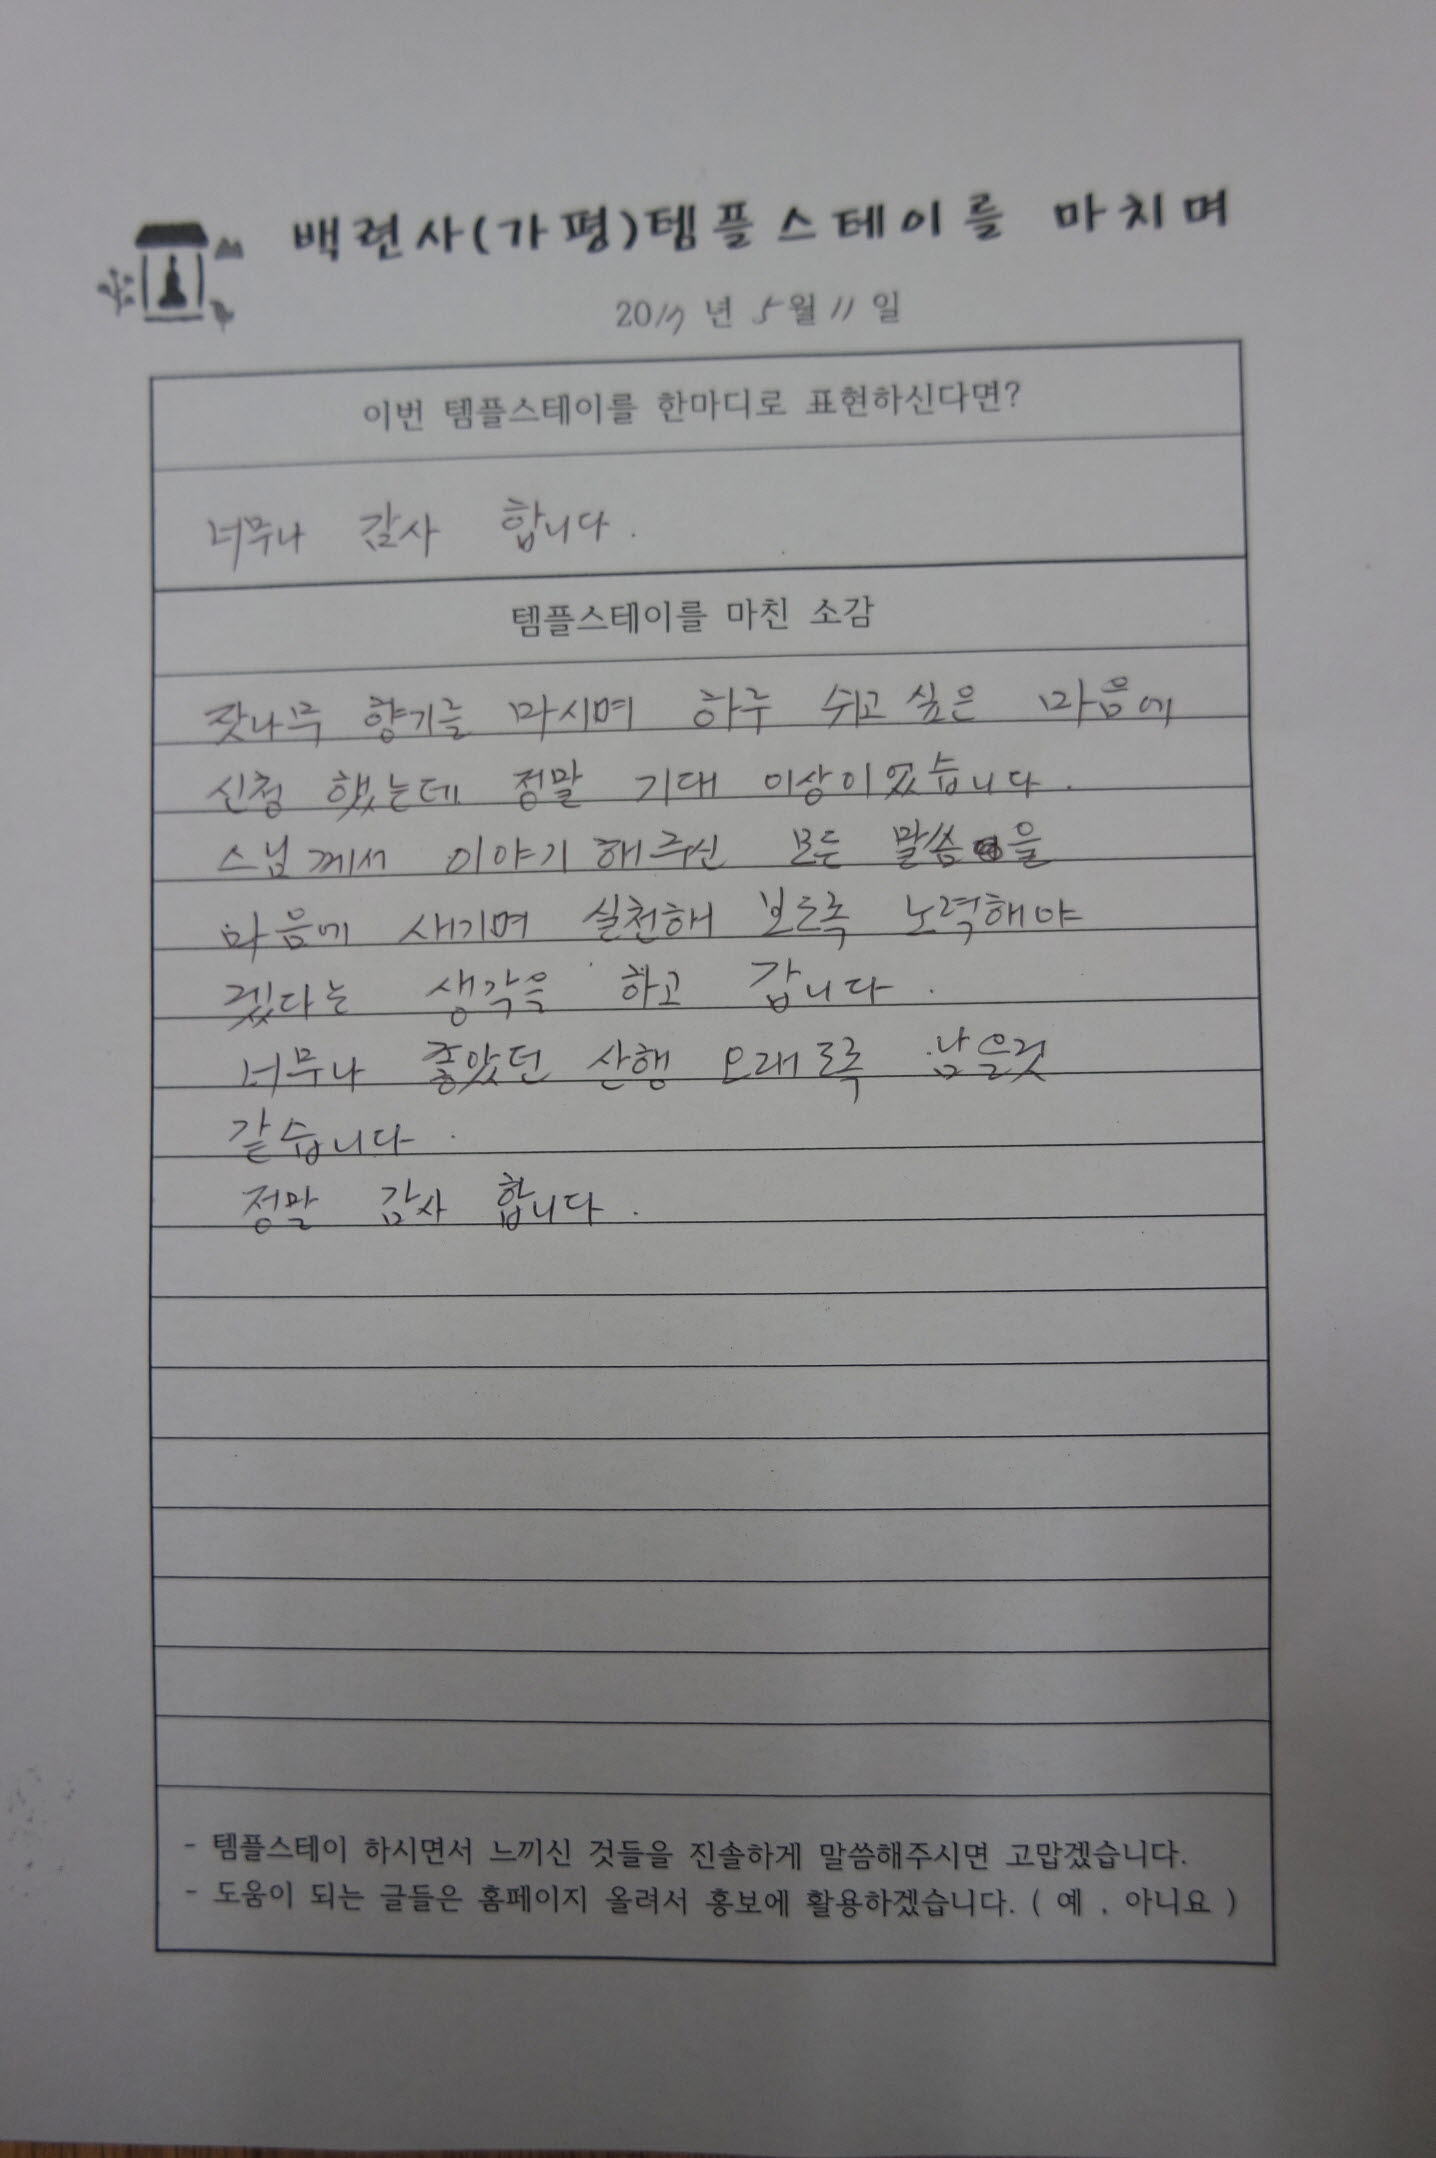 백련사(가평)템플스테이를 마치며
2017년 5월 11일
이번 템플스테이를 한마디로 표현하신다면?
너무나 감사 합니다.
템플스테이를 마친 소감
잣나무 향기를 마시며 하루 쉬고 싶은 마음에
신청 했는데 정말 기대 이상이였습니다.
스님께서 이야기 해주신 모든 말씀을
마음에 새기며 실천해 보도록 노력해야
겠다는 생각을 하고 갑니다.
너무나 좋았던 산행 오래도록 남을것
같습니다.
정말 감사 합니다.
- 템플스테이 하시면서 느끼신 것들을 진솔하게 말씀해주시면 고맙겠습니다.
- 도움이 되는 글들은 홈페이지 올려서 홍보에 활용하겠습니다. ( 예 , 아니요 )